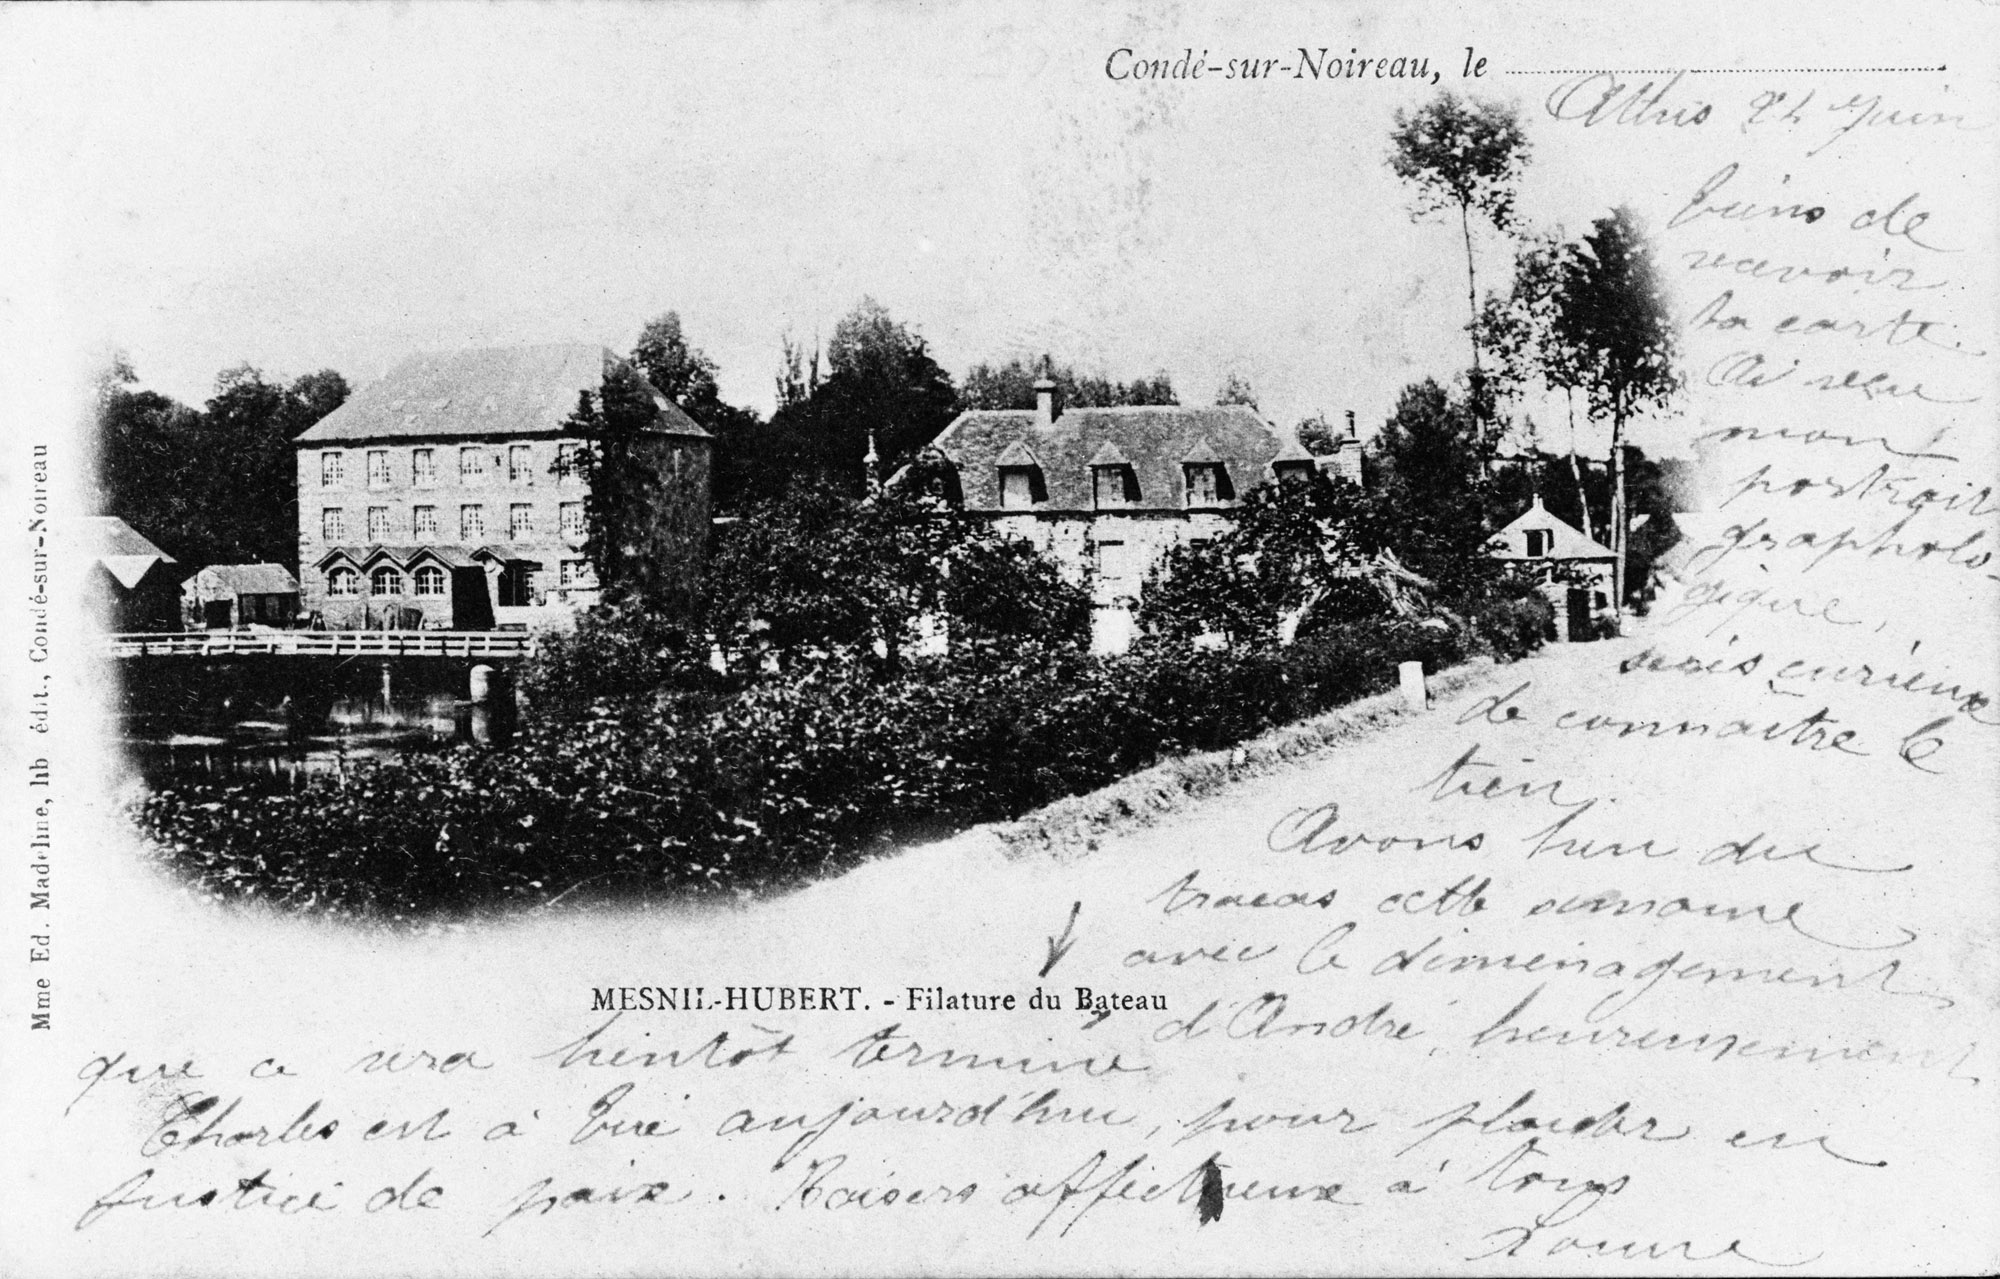 Condé-sur-Noireau, le
Athis 24 Juin
Viens de
recevoir
ta carte.
Ai reçu
mon
portrait
grapholo-
gique,
serais curieuse
de connaitre le
tien.
Avons eu du
tracas cette semaine
avec le déménagement
d'André, heureusement
que ce sera bientôt terminé
Charles est à Vire aujourd'hui, pour plaider en
justice de paix. Baisers affectueux à tous
MESNIL-HUBERT. - Filature du Bateau
Mme Ed. Madeline, lib édit., Condé-sur-Noireau